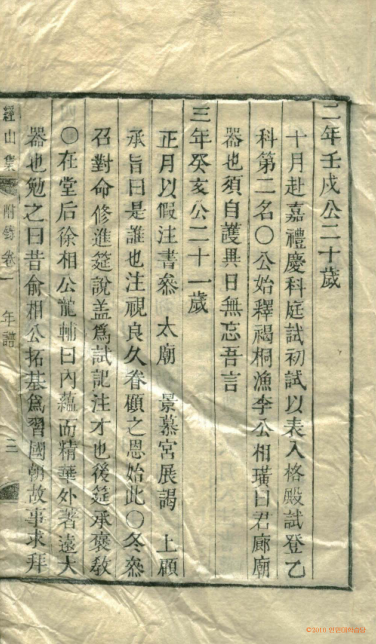 二年壬戌公二十歲
十月赴嘉禮慶科庭試初試以表入格殿試登乙
科第二名○公始釋褐桐漁李公相璜曰君廊廟
器也須自護異日無忘吾言
三年癸亥公二十一歲
正月以假注書參 太廟 景慕宮展謁 上顧
承旨曰是誰也注視良久眷顧之恩始此○冬參
召對命修進筵說盖爲試記注才也後筵承褒敎
○在堂后徐相公龍輔曰內蘊而精華外著遠大
器也勉之曰昔兪相公拓基爲習國朝故事求拜
經山集 附錄卷一 年譜 三
©2018 한민대아람당